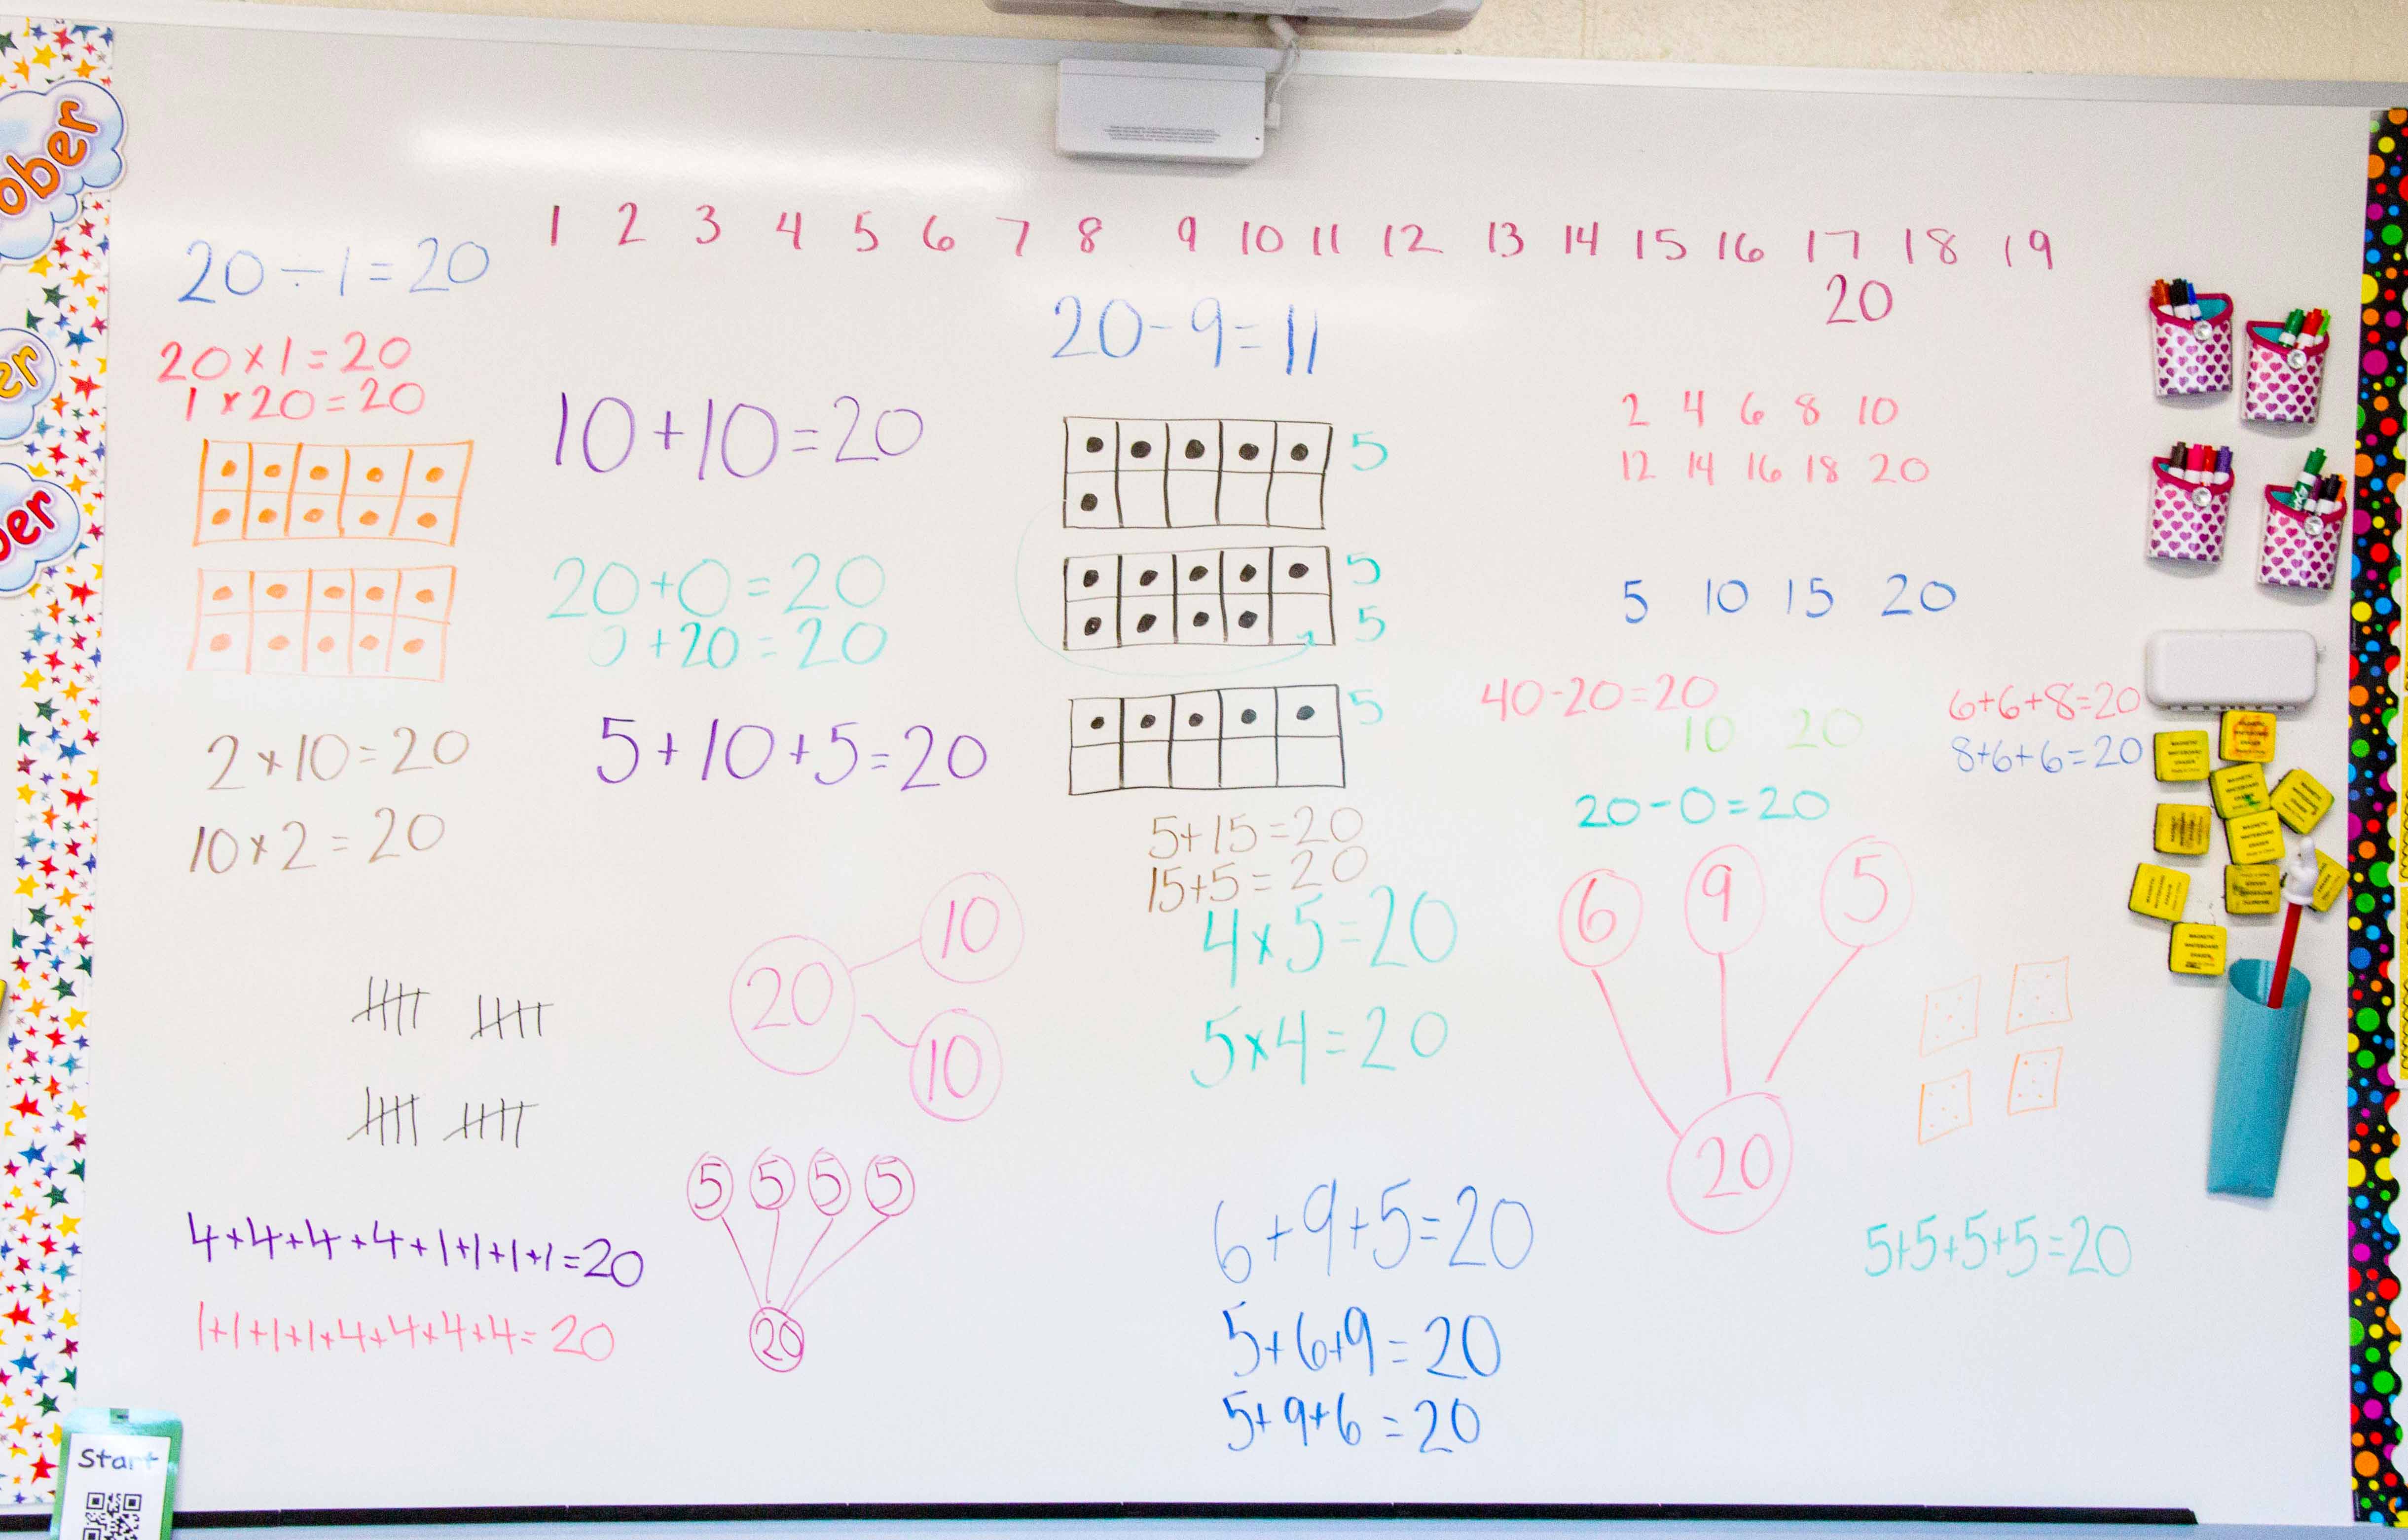 ober
er
ber
1 2 3 4 5 6 7 8 9 10 11 12 13 14 15 16 17 18 19
20
20÷1=20
20x1=20
1x20=20
2x10=20
10x2=20
10+10=20
20+0=20
0+20=20
5+10+5=20
20-9=11
5
5
5
5
5+15=20
15+5=20
4x5=20
5x4=20
2 4 6 8 10
12 14 16 18 20
5 10 15 20
40-20=20
10 20
20-0=20
6+6+8=20
8+6+6=20
20
10
10
5 5 5 5
20
6 9 5
20
4+4+4+4+1+1+1+1=20
1+1+1+1+4+4+4+4=20
6+9+5=20
5+6+9=20
5+9+6=20
5+5+5+5=20
Start
MAGNETIC
WHITEBOARD
ERASER